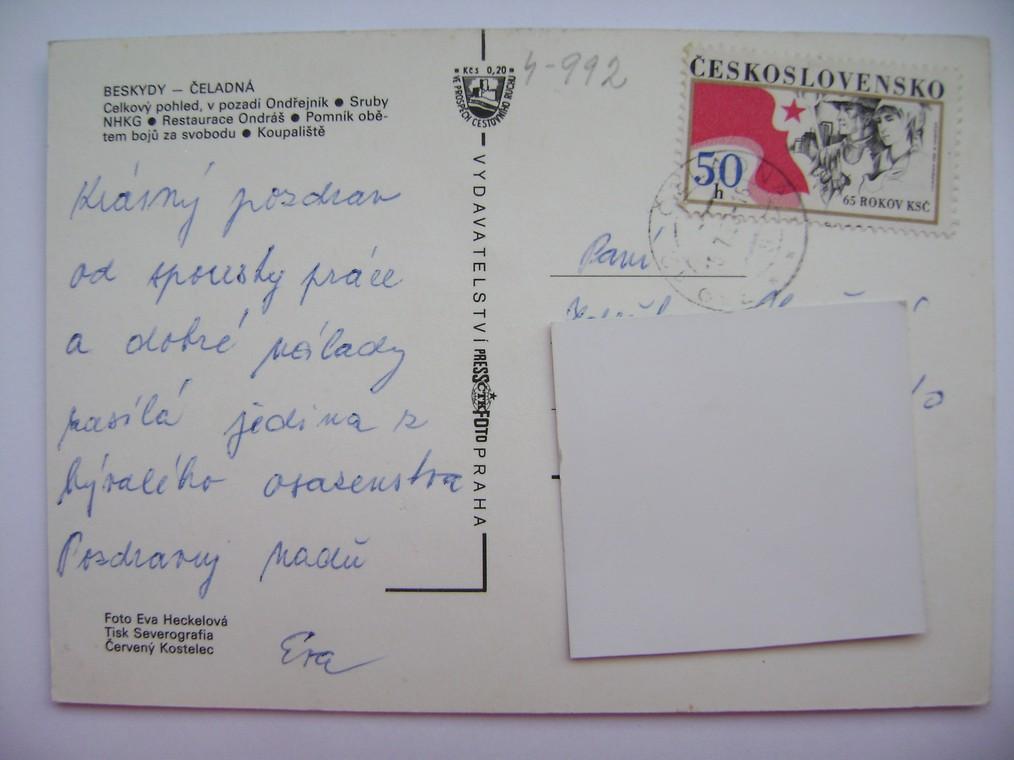 BESKYDY — ČELADNÁ
Celkový pohled, v pozadí Ondřejník ● Sruby
NHKG ● Restaurace Ondráš ● Pomník obě-
tem bojů za svobodu ● Koupaliště
Krásný pozdrav
od spousty práce
a dobré nálady
zasílá jediná z
bývalého osazenstva
Pozdravuj
Eva
Foto Eva Heckelová
Tisk Severografia
Červený Kostelec
Kčs 0,20
VE PROSPĚCH CESTOVNÍHO RUCHU
VYDAVATELSTVÍ PRESSFOTO PRAHA
ČTK
4-992
ČESKOSLOVENSKO
50
h
65 ROKOV KSČ
Paní